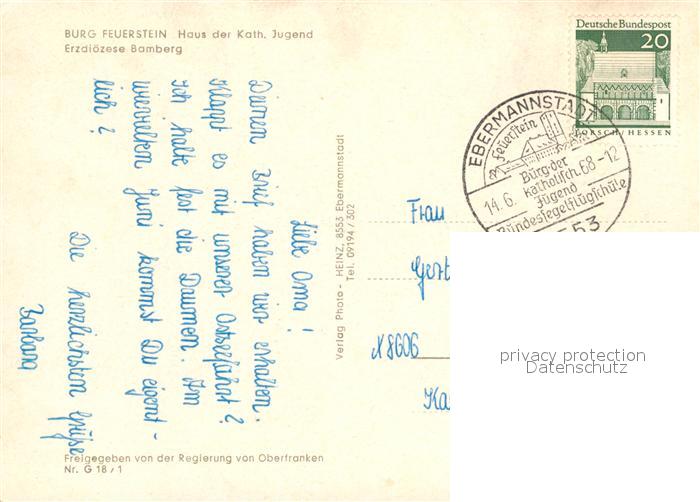 BURG FEUERSTEIN Haus der Kath. Jugend
Erzdiözese Bamberg
Liebe Oma!
Deinen Brief haben wir erhalten.
Klappt es mit unserer Ostseefahrt?
Ich halte fest die Daumen. Am
wievielten Juni kommst Du eigent-
lich?
Die herzlichsten Grüße
Barbara
Verlag Photo - HEINZ, 8553 Ebermannstadt
Tel. 09194 / 302
Deutsche Bundespost
20
LORSCH/HESSEN
EBERMANNSTADT
Feuerstein
Burg der
katholisch.
Jugend
Bundessegelflugschule
14.6.
68-12
Frau
8606
privacy protection
Datenschutz
Freigegeben von der Regierung von Oberfranken
Nr. G 18/1